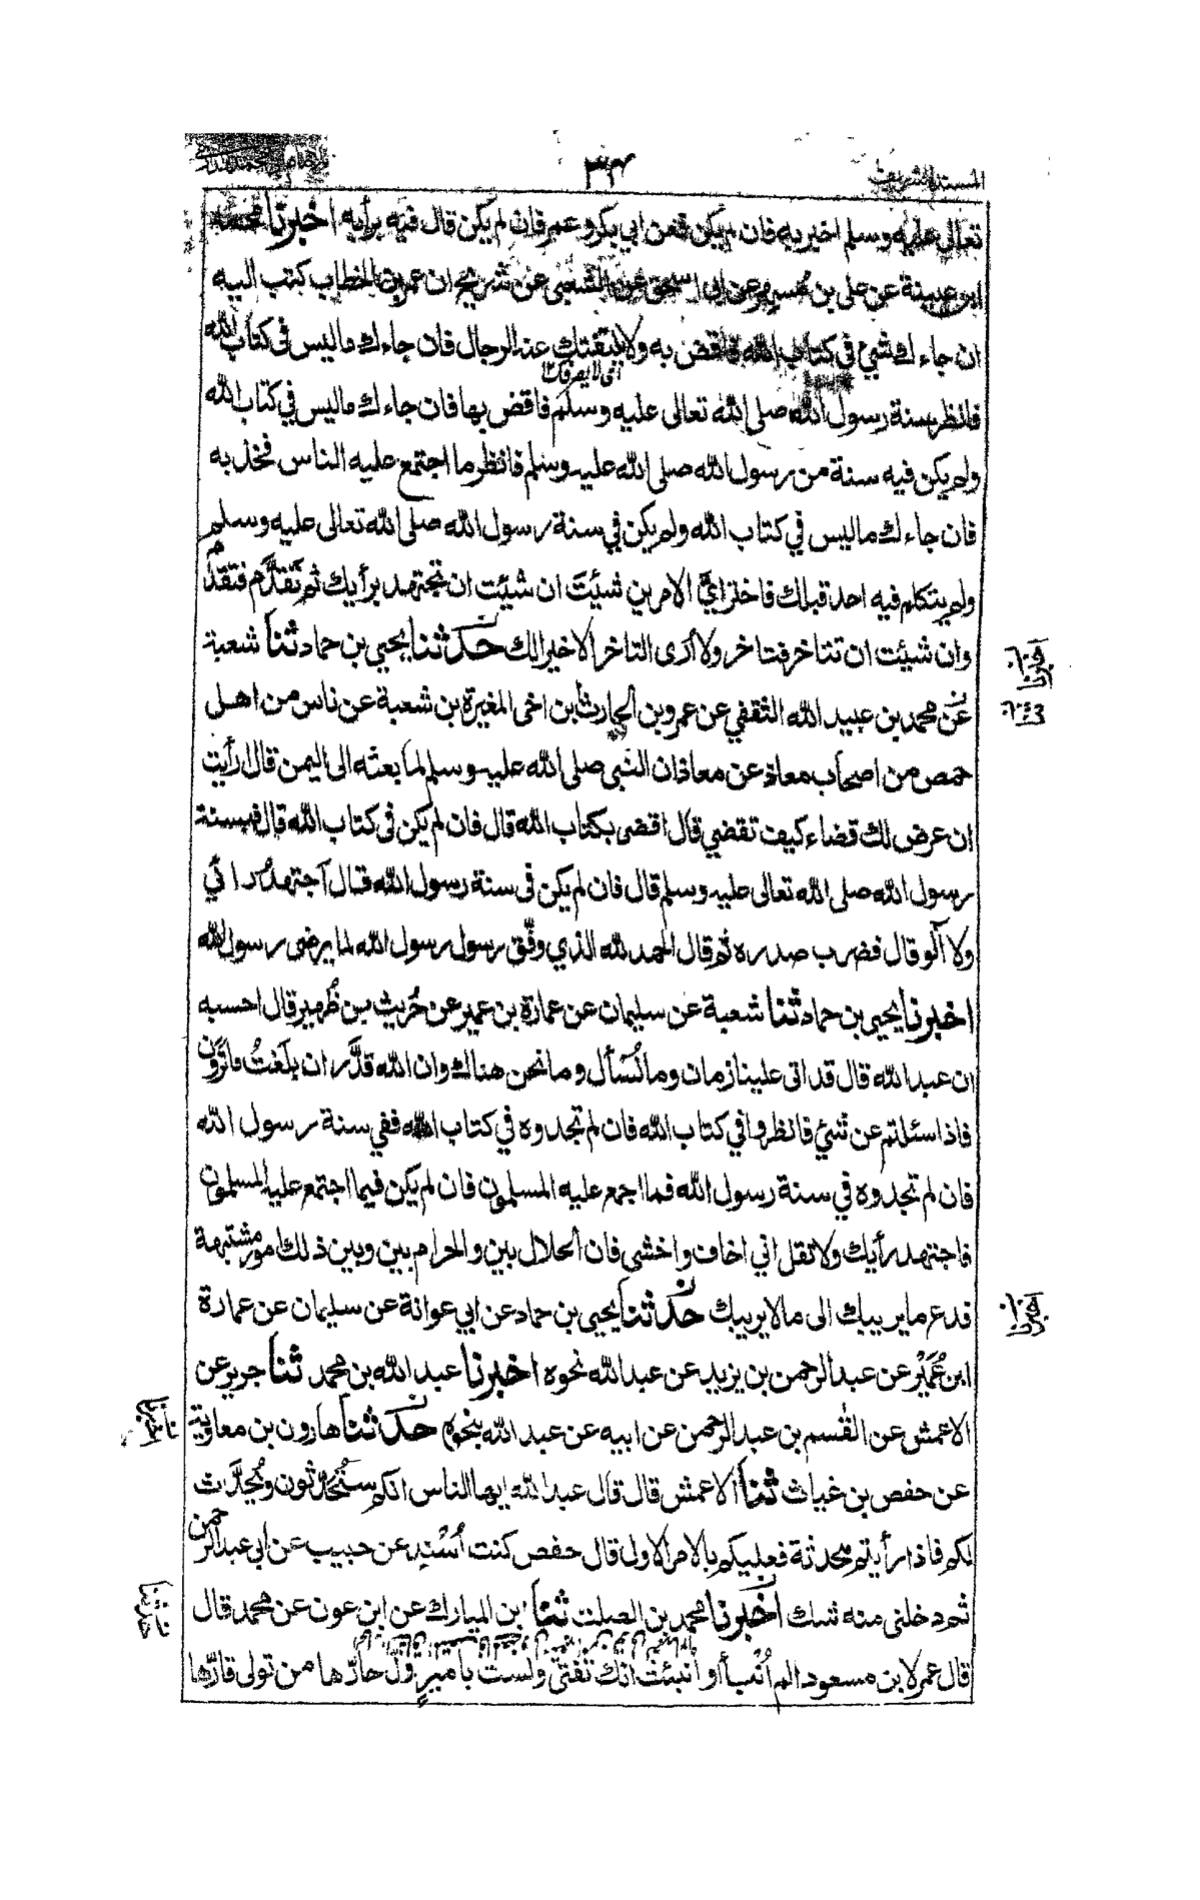 المسند الشريف
٣٤
تعالى عليه وسلم اخبر به فان لم يكن فعن ابي بكر وعمر فان لم يكن قال فيه برأيه اخبرنا محمد
ابن عيينة عن علي بن مسهر عن ابي اسحق عن الشعبي عن شريح ان عمر بن الخطاب كتب اليه
ان جاءك شئ في كتاب الله فاقض به ولا يلفتنك عنه الرجال فان جاءك ماليس في كتاب الله
اى لا يصرفك
فانظر سنة رسول الله صلى الله تعالى عليه وسلم فاقض بها فان جاءك ماليس في كتاب الله
ولم يكن فيه سنة من رسول الله صلى الله عليه وسلم فانظر ما اجتمع عليه الناس فخذ به
فان جاءك ماليس في كتاب الله ولم يكن في سنة رسول الله صلى الله تعالى عليه وسلم
ولم يتكلم فيه احد قبلك فاختر اىَّ الامرين شئتَ ان شئت ان تجتهد برأيك ثم تَقَدَّم فتقدَّم
وان شئت ان تتاخر فتاخر ولا أرى التاخر الا خيرا لك حدثنا يحيى بن حماد ثنا شعبة
عن محمد بن عبيد الله الثقفي عن عمرو بن الحارث ابن اخى المغيرة بن شعبة عن ناس من اهل
حمص من اصحاب معاذ عن معاذ ان النبي صلى الله عليه وسلم لما بعثه الى اليمن قال ارأيت
ان عرض لك قضاء كيف تقضي قال اقضى بكتاب الله قال فان لم يكن في كتاب الله قال فبسنة
رسول الله صلى الله تعالى عليه وسلم قال فان لم يكن في سنة رسول الله قال آجتهد رائي
ولا آلو قال فضرب صدره ثم قال الحمد لله الذي وفّق رسول رسول الله لما يرضى رسول الله
اخبرنا يحيى بن حماد ثنا شعبة عن سليمان عن عمارة بن عمير عن حُريث بن ظُهير قال احسبه
ان عبد الله قال قد اتى علينا زمان وما نُسْأل وما نحن هناك وان الله قدَّر ان بلَغتُ ما تَرَون
فاذا سئلتم عن شئ فانظروا في كتاب الله فان لم تجدوه في كتاب الله ففي سنة رسول الله
فان لم تجدوه في سنة رسول الله فما اجمع عليه المسلمون فان لم يكن فيما اجتمع عليه المسلمون
فاجتهد رأيك ولا تقل اني اخاف واخشى فان الحلال بين والحرام بين وبين ذلك امور مشتبهة
فدع ما يريبك الى مالا يريبك حدثنا يحيى بن حماد عن ابي عوانة عن سليمان عن عمارة
ابن عُمَيْر عن عبد الرحمن بن يزيد عن عبد الله نحوه اخبرنا عبد الله بن محمد ثنا جرير عن
الاعمش عن القٰسم بن عبد الرحمن عن ابيه عن عبد الله بنحوه حدثنا هارون بن معاوية
عن حفص بن غياث ثنا الاعمش قال قال عبد الله ايها الناس انكم ستُحَدِّثون ويُحدَّث
لكم فاذا رأيتم محدثة فعليكم بالامر الاولى قال حفص كنت اُسْنِد عن حبيب عن ابي عبد الرحمن
ثم دخلني منه شك اخبرنا محمد بن الصلت ثنا ابن المبارك عن ابن عون عن محمد قال
قال عمر لابن مسعود الم اُنْبأ أو انبئت انك تفتى ولست بامير وَلّ حارّها من تولى قارّها